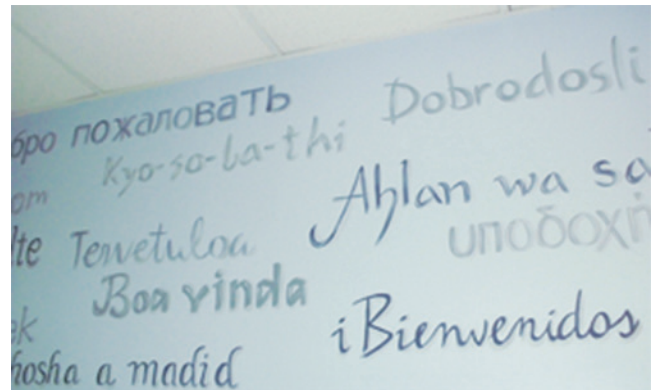 бро пожаловать
Dobrodosli
Kyo-so-la-thi
om
Ahlan wa sa
lte Tervetuloa
υποδοχή
Boa vinda
ek
¡Bienvenidos
hosha a madid